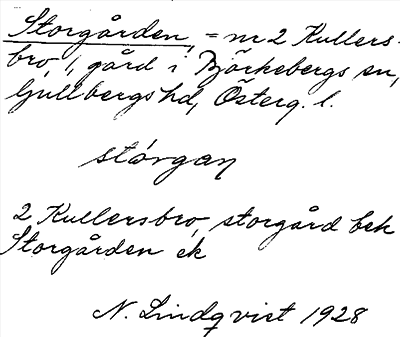 Storgården, = nr 2 Kullers-
bro, 1, gård i Björkebergs sn,
Gullbergs hd, Österg. l.
stórgan
2 Kullersbro, storgård bek
Storgården ek
N. Lindqvist 1928